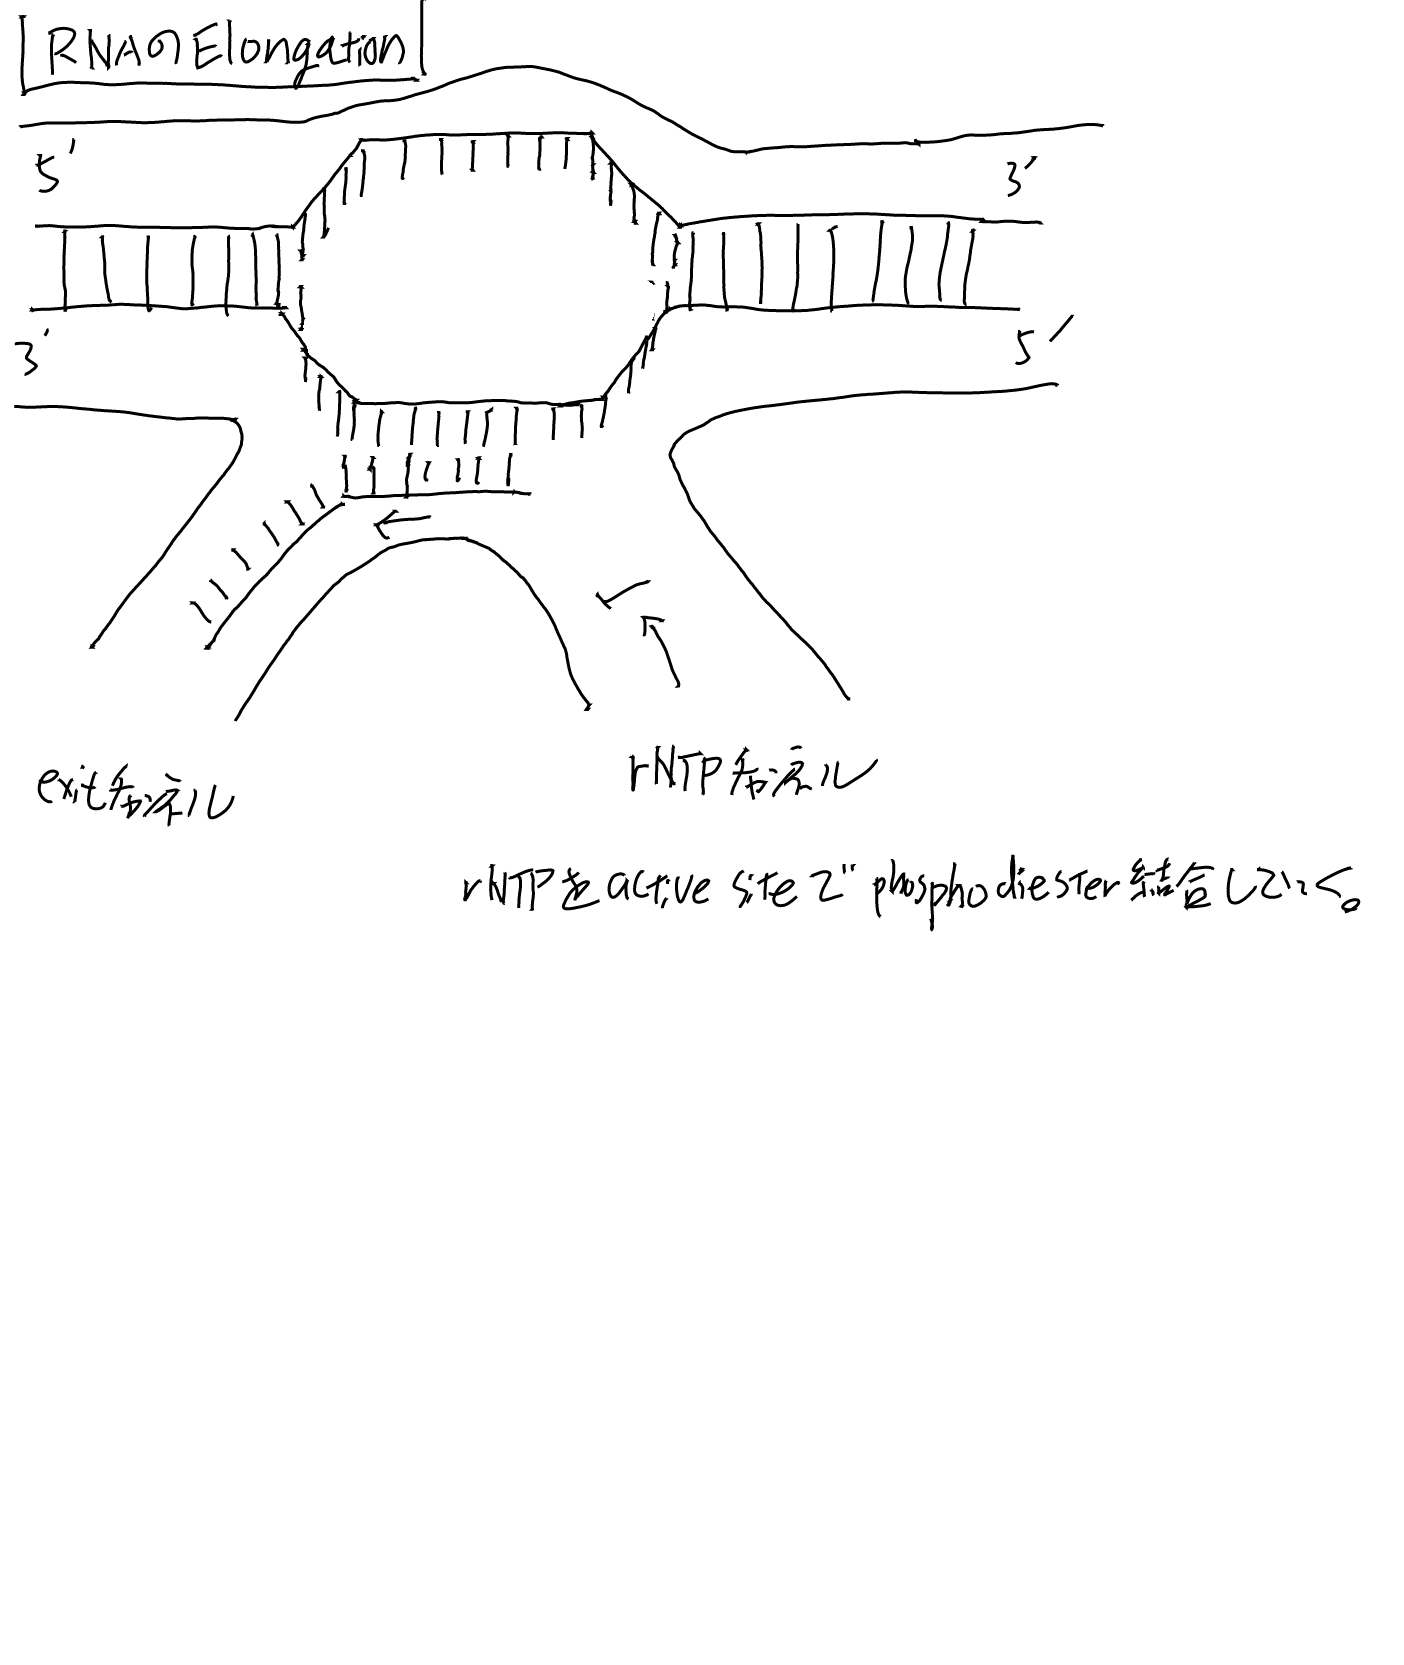 RNAのElongation
5'
3'
3'
5'
exitチャンネル
rNTPチャンネル
rNTPをactive siteでphosphodiester結合していく。